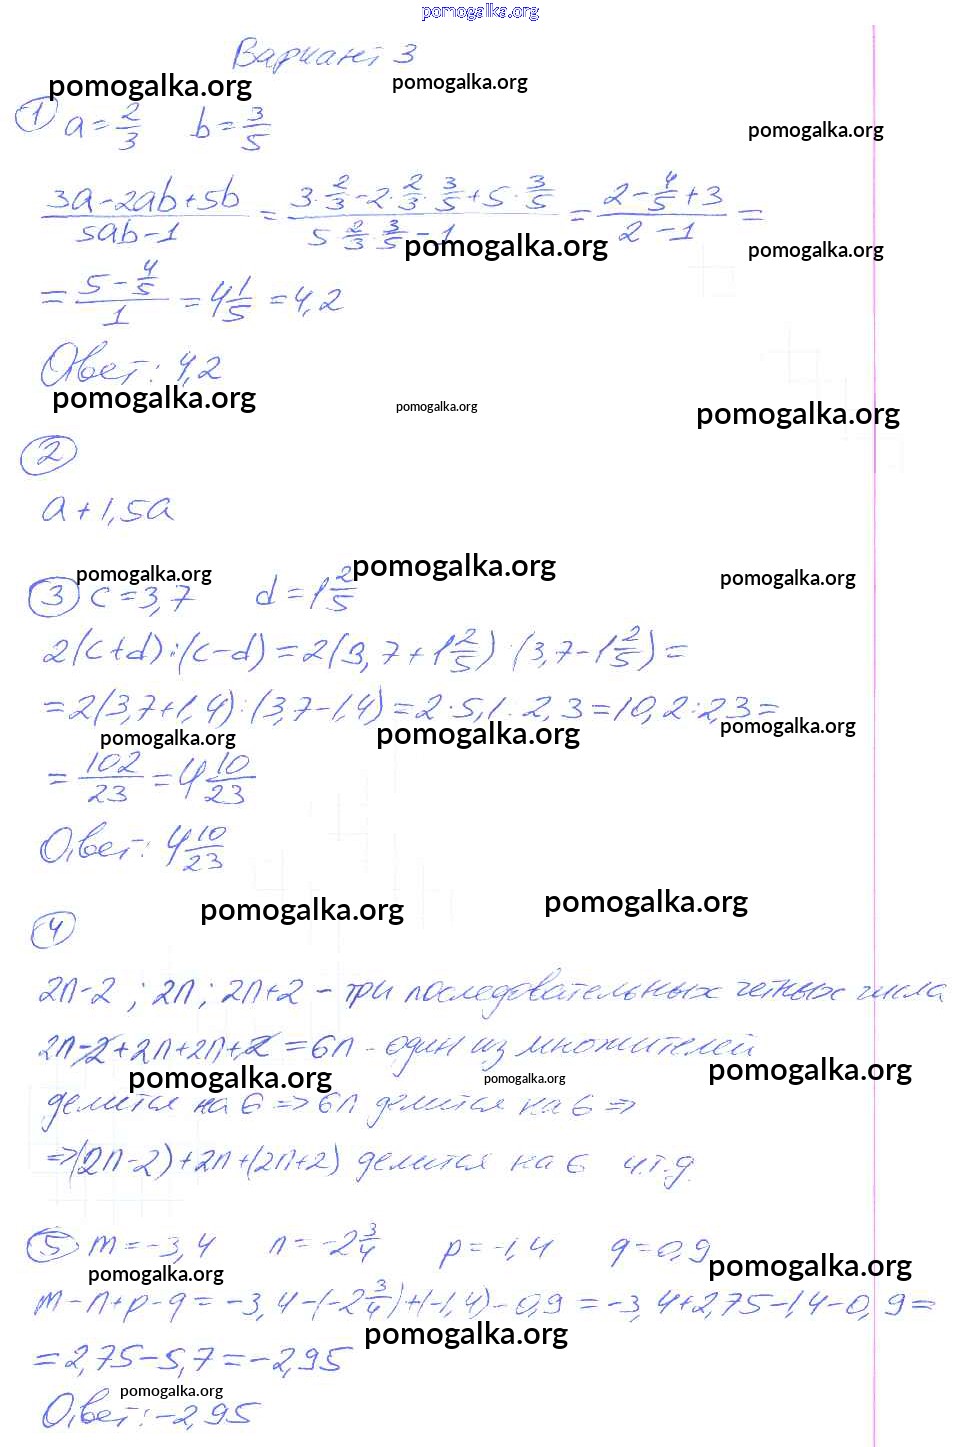 pomogalka.org
Вариант 3
pomogalka.org pomogalka.org
① a = 2/3 b = 3/5
pomogalka.org
(3a - 2ab + 5b)/(5ab - 1) = (3 · 2/3 - 2 · 2/3 · 3/5 + 5 · 3/5)/(5 2/3 · 3/5 - 1) = (2 - 4/5 + 3)/(2 - 1) =
pomogalka.org pomogalka.org
= (5 - 4/5)/1 = 4 1/5 = 4,2
Ответ: 4,2
pomogalka.org pomogalka.org pomogalka.org
②
a + 1,5a
pomogalka.org pomogalka.org pomogalka.org
③ c = 3,7 d = 1 2/5
2(c+d):(c-d) = 2(3,7 + 1 2/5) : (3,7 - 1 2/5) =
= 2(3,7+1,4):(3,7-1,4) = 2 · 5,1 : 2,3 = 10,2 : 2,3 =
pomogalka.org pomogalka.org pomogalka.org
= 102/23 = 4 10/23
Ответ: 4 10/23
pomogalka.org pomogalka.org
④
2n-2 ; 2n ; 2n+2 - три последовательных четных числа
2n-2+2n+2n+2 = 6n - один из множителей
pomogalka.org pomogalka.org pomogalka.org
делится на 6 => 6n делится на 6 =>
=> (2n-2)+2n+(2n+2) делится на 6 ч.т.д.
⑤ m = -3,4 n = -2 3/4 p = -1,4 q = 0,9
pomogalka.org pomogalka.org
m - n + p - q = -3,4 - (-2 3/4) + (-1,4) - 0,9 = -3,4 + 2,75 - 1,4 - 0,9 =
pomogalka.org
= 2,75 - 5,7 = -2,95
pomogalka.org
Ответ: -2,95